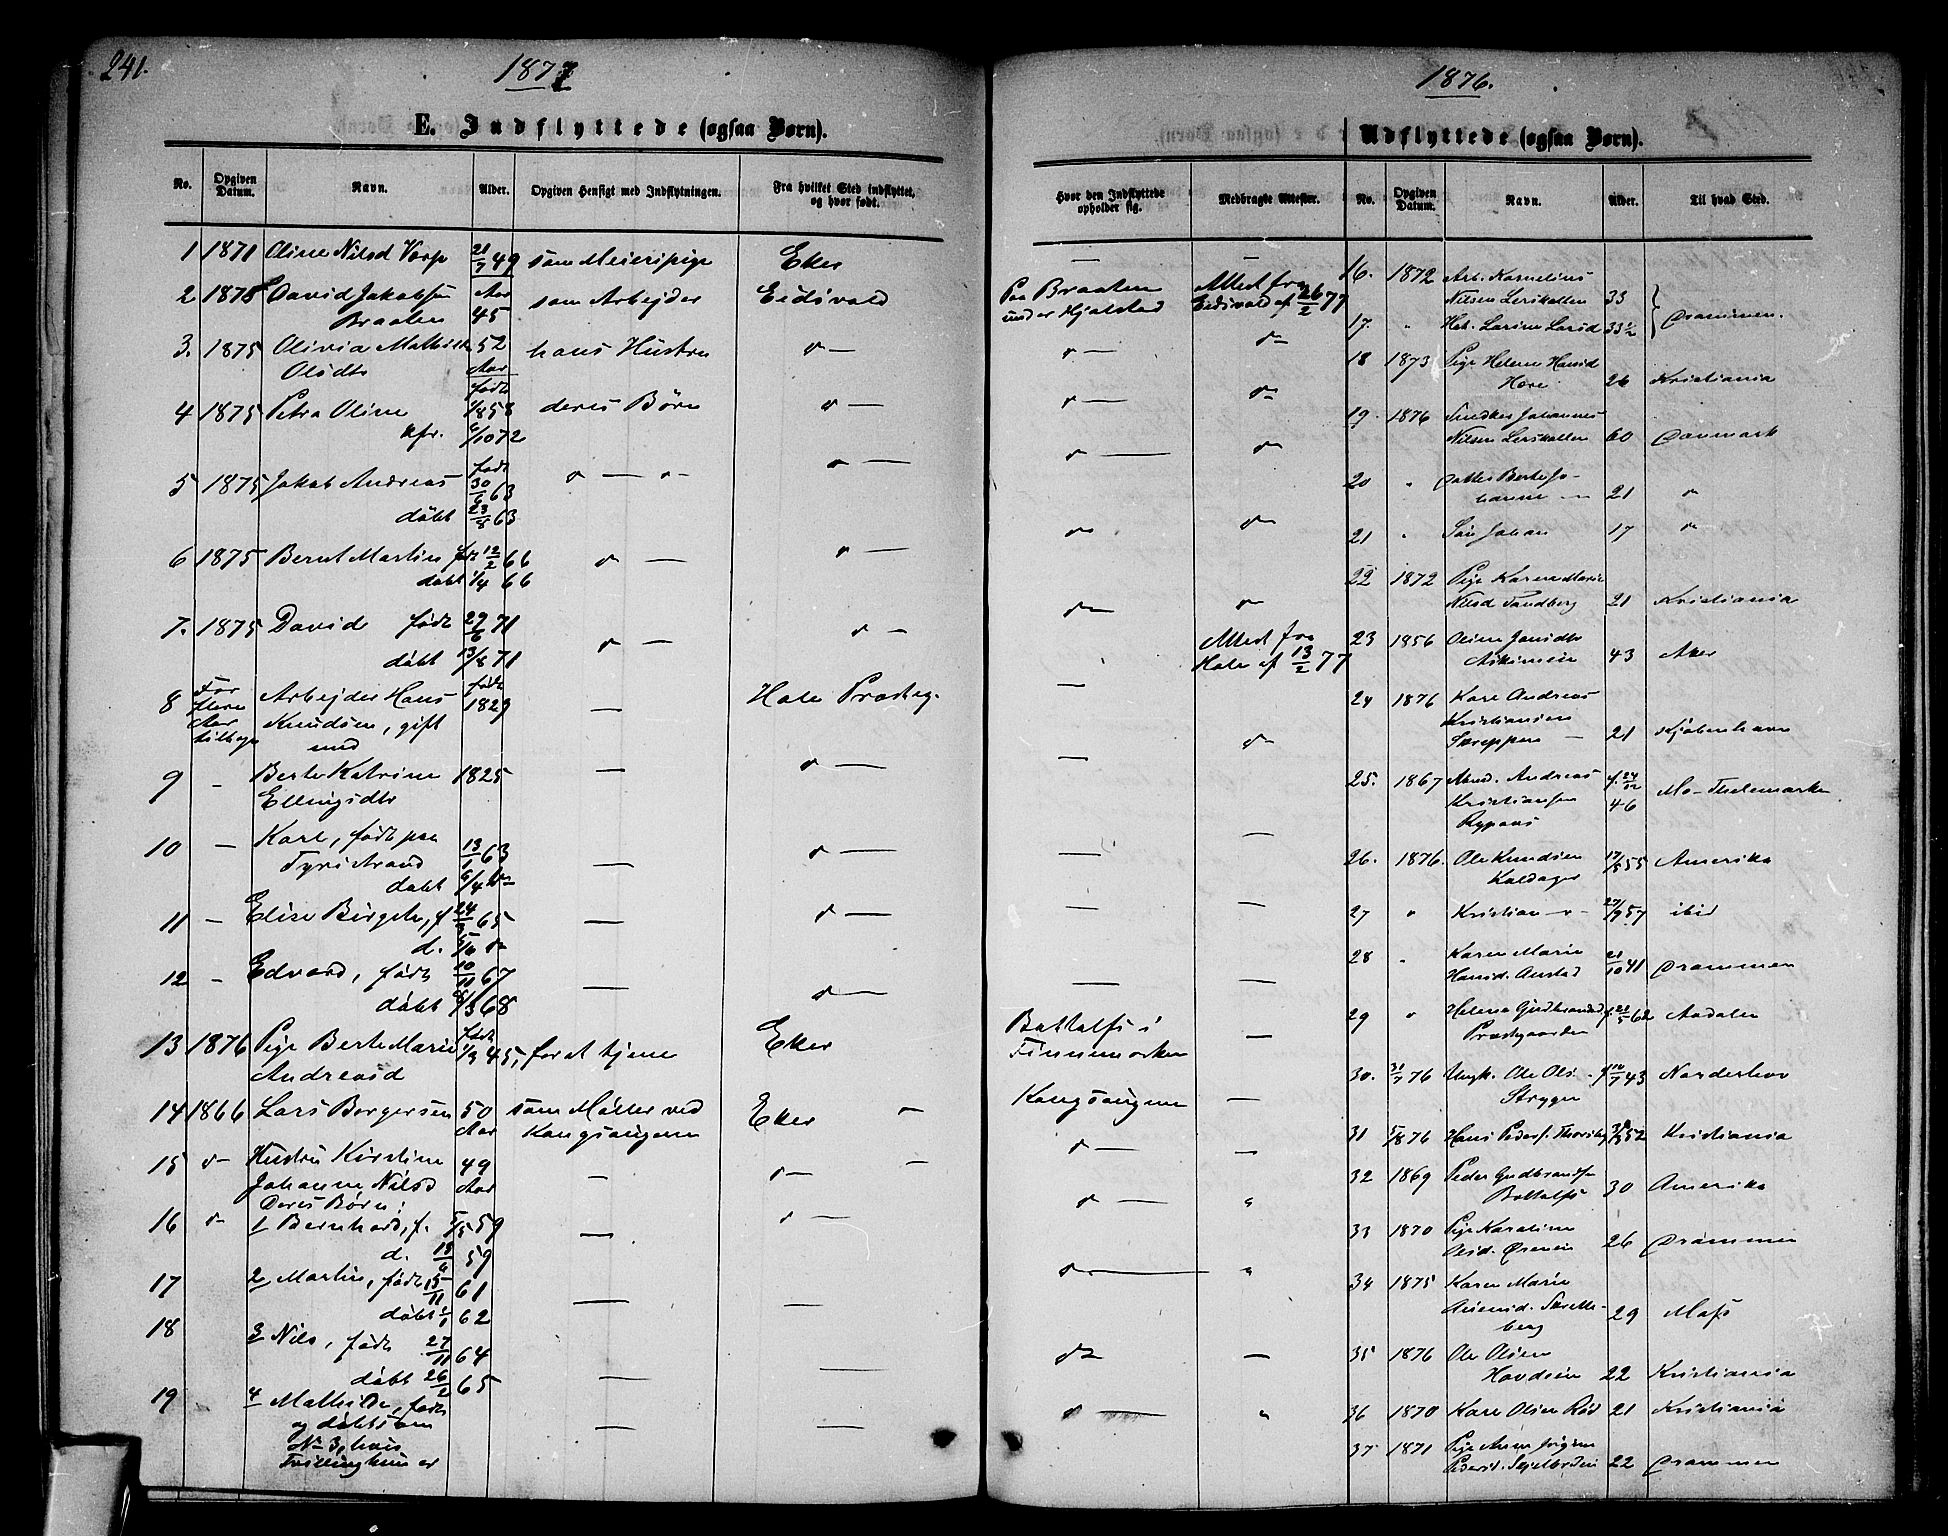 241.
1877
E. Indflyttede (ogsaa Børn).
No. Opgiven Datum. Navn. Alder. Opgiven Hensigt med Indflytningen. Fra hvilket Sted indflyttet, og hvor født.
1 1871 Oline Nilsd 21/7 49 som Meieripige Eker
2 1875 David Jakobsen Aar som Arbejder Eidsvold
Braaten 45
3. 1875 Olivia Mathilde 52 hans Hustru
Olsdtr Aar
født
4 1875 Petra Oline 1/8 58 deres Børn
kfr. 6/10 72
født
5 1875 Jakob Andreas 30/6 63
døbt 23/8 63
6 1875 Bernt Martin 12/2 66
døbt 1/4 66
7. 1875 David født 27/6 71
døbt 13/8 71
8 For flere Aar tilbage Arbejder Hans født 1829 — Hole Præsteg.
Knudsen, gift
med
9 - Berte Katrine 1825 —
Ellingsdtr
10 — Karl, født paa
Tyristrand 13/1 63 —
døbt 6/4
11 - Elise Birgitte, f. 24/3 65 —
d. 5/6
12 - Edvard, født 10/11 67 —
døbt 8/3 68
13 1876 Pige Berte Marie født 1/3 45, for at tjene Eker
Andreasd
14 1866 Lars Borgersen 50 som Møller ved Eker
Aar Kongsaugene
15 Hustru Kirstine 49
Johanne Nilsd Aar
Deres Børn:
16 1 Bernhard, f. 5/5 59 —
d. 13/6 59
17 2 Martin, født 15/11 61 —
døbt 1/1 62
18 3 Nils, født 27/11 64
døbt 26/2 65
19 4 Mathilde, født
og døbt som
No 3, hvis
Tvilling hun er
1876.
Udflyttede (ogsaa Børn).
Hvor den Indflyttede opholder sig. Medbragte Attester. No. Opgiven Datum. Navn. Alder. Til hvad Sted.
Paa Braaten Attest fra
under Hjalstad Eidsvold af 26/2 77
Attest fra
Hole af 13/2 77
Bottolfs i
Finnemarken
Kongsaugene
16. 1872 Arb. Kornelius
Nilsen Lerskallen 33
17. " Larine Larsd 33½ Drammen.
18 1873 Pige Helene Hansd
Hore 26 Kristiania
19. 1876 Johannes
Nilsen Lerskallen 60 Danmark
20 " Datter Berte Jo-
hanne 21
21 " Søn Johan 17
22 1872 Pige Karen Marie
Nilsd Sandberg 21 Kristiania
23 1856 Oline
43 Aker
24 1876 Kare Andreas
Kristiansen
21 Kjøbenhavn
25. 1867 Andreas
Kristiansen 46 Mo - Thelemarken
26. 1876. Ole Knudsen 17/5 55 Amerika
Kaldager
27 " Kristian 27/9 57 ibid
28 " Karen Marie
Hansd. 21/10 41 Drammen
29 " Helene Gudbrandsd 62 Aadalen
Præstgaarden
30. 31/7 76 Ungk. Ole Ols. 43 Norderhov
31 5/8 76 Hans Peders. 52 Kristiania
32 1869 Peder Gudbrandsen
Bottolfs 30 Amerika
33 1870 Pige Karoline
26 Drammen
34 1875 Karen Marie
berg 29 Moss
35 1876 Ole Olsen
22 Kristiania
36 1870 Kare Olsen Rød 21 Kristiania
37 1871 Pige Anne
Pedersd. 22 Drammen